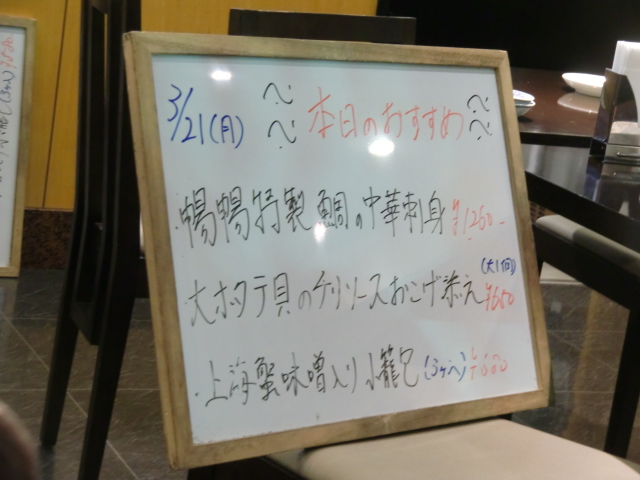 3/21(月) 本日のおすすめ
・暢暢特製 鯛の中華刺身 ¥1260-
大ホタテ貝のチリソースおこげ添え (大1個) ¥650
・上海蟹味噌入り小籠包 (3ヶ入)